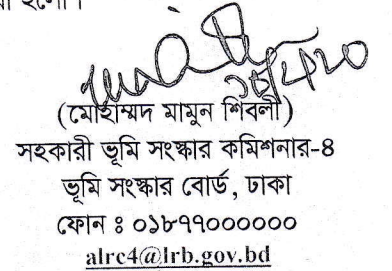 হলো।
(মোহাম্মদ মামুন শিবলী)
সহকারী ভূমি সংস্কার কমিশনার-৪
ভূমি সংস্কার বোর্ড, ঢাকা
ফোন ঃ ০১৮৭৭০০০০০০
alrc4@lrb.gov.bd